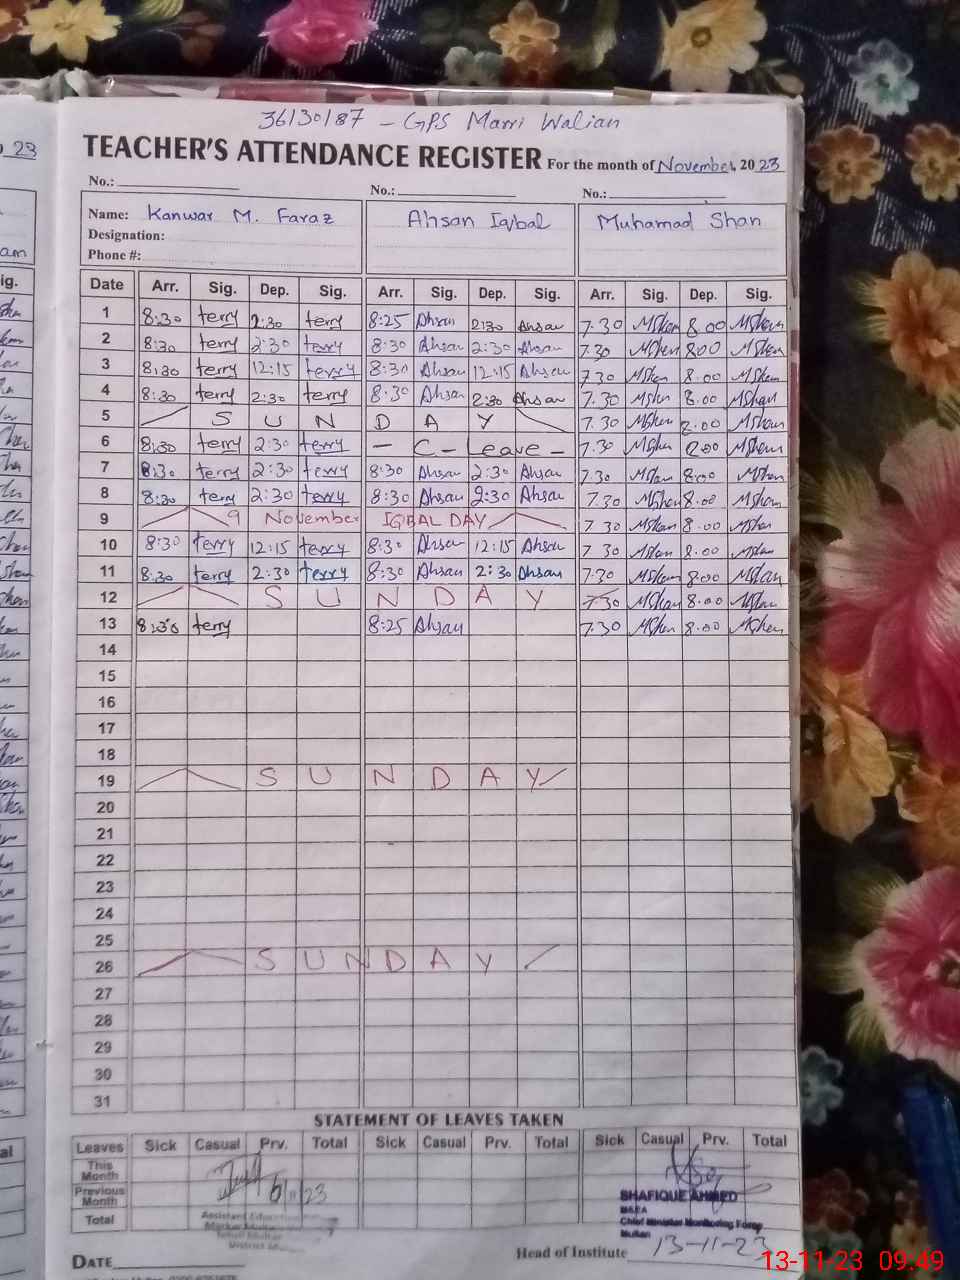 36130187 - GPS Marri Walian
TEACHER'S ATTENDANCE REGISTER For the month of November, 2023
No.: No.: No.:
Name: Kanwar M. Faraz Ahsan Iqbal Muhamad Shan
Designation:
Phone #:
Date Arr. Sig. Dep. Sig. Arr. Sig. Dep. Sig. Arr. Sig. Dep. Sig.
1 8:30 terry 2:30 terry 8:25 Ahsan 2:30 Ahsan 7.30 MShan 8.00 MShan
2 8:30 terry 2:30 terry 8:30 Ahsan 2:30 Ahsan 7.30 MShan 8.00 MShan
3 8:30 terry 12:15 terry 8:30 Ahsan 12:15 Ahsan 7.30 MShan 8.00 MShan
4 8:30 terry 2:30 terry 8:30 Ahsan 2:30 Ahsan 7.30 MShan 8.00 MShan
5 S U N D A Y 7.30 MShan 8.00 MShan
6 8:30 terry 2:30 terry - C - Leave - 7.30 MShan 8.00 MShan
7 8:30 terry 2:30 terry 8:30 Ahsan 2:30 Ahsan 7.30 MShan 8.00 MShan
8 8:30 terry 2:30 terry 8:30 Ahsan 2:30 Ahsan 7.30 MShan 8.00 MShan
9 9 November IQBAL DAY 7.30 MShan 8.00 MShan
10 8:30 terry 12:15 terry 8:30 Ahsan 12:15 Ahsan 7.30 MShan 8.00 MShan
11 8:30 terry 2:30 terry 8:30 Ahsan 2:30 Ahsan 7.30 MShan 8.00 MShan
12 S U N D A Y 7.30 MShan 8.00 MShan
13 8:30 terry 8:25 Ahsan 7.30 MShan 8.00 MShan
14
15
16
17
18
19 S U N D A Y
20
21
22
23
24
25
26 S U N D A Y
27
28
29
30
31
STATEMENT OF LEAVES TAKEN
Leaves Sick Casual Prv. Total Sick Casual Prv. Total Sick Casual Prv. Total
This Month
Previous Month
Total
6/11/23
Assistant Education
SHAFIQUE AHMED
M&EA
Chief Minister Monitoring Force
Multan
DATE Head of Institute 13-11-23
13-11-23 09:49